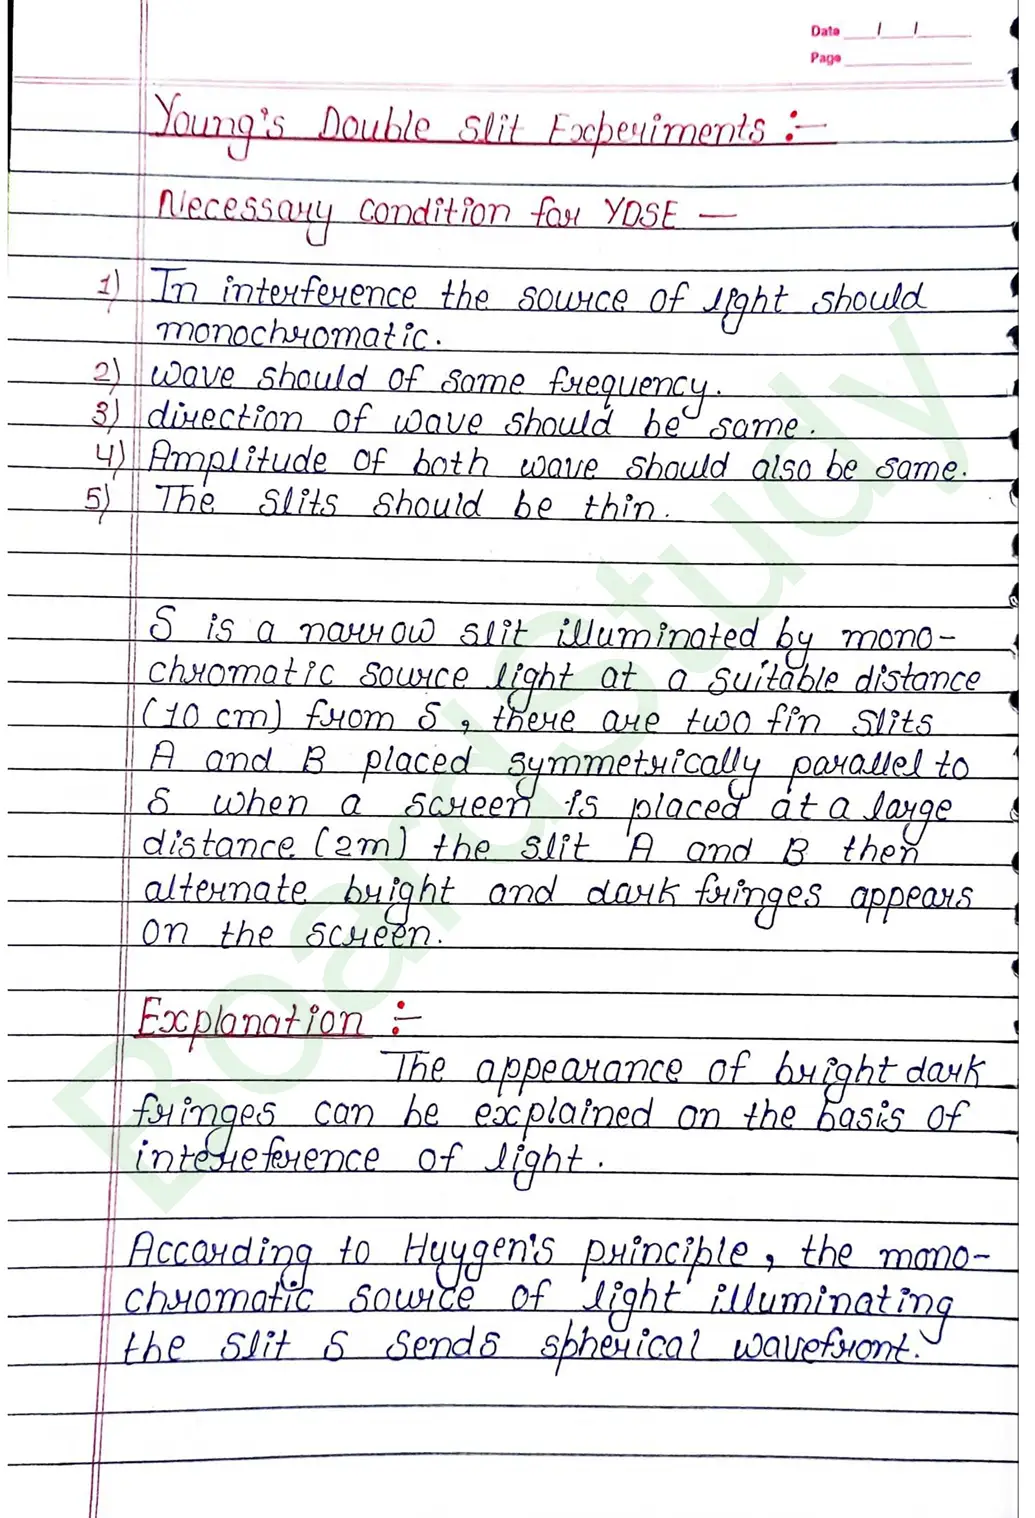 Date / /
Page
Young's Double Slit Experiments :-
Necessary condition for YDSE —
1) In interference the source of light should
monochromatic.
2) wave should of same frequency.
3) direction of wave should be same.
4) Amplitude of both wave should also be same.
5) The slits should be thin.
S is a narrow slit illuminated by mono-
chromatic source light at a suitable distance
(10 cm) from S, there are two fin slits
A and B placed symmetrically parallel to
S when a screen is placed at a large
distance (2m) the slit A and B then
alternate bright and dark fringes appears
on the screen.
Explanation :-
The appearance of bright dark
fringes can be explained on the basis of
intereference of light.
According to Huygen's principle, the mono-
chromatic source of light illuminating
the slit S sends spherical wavefront.
BoardStudy